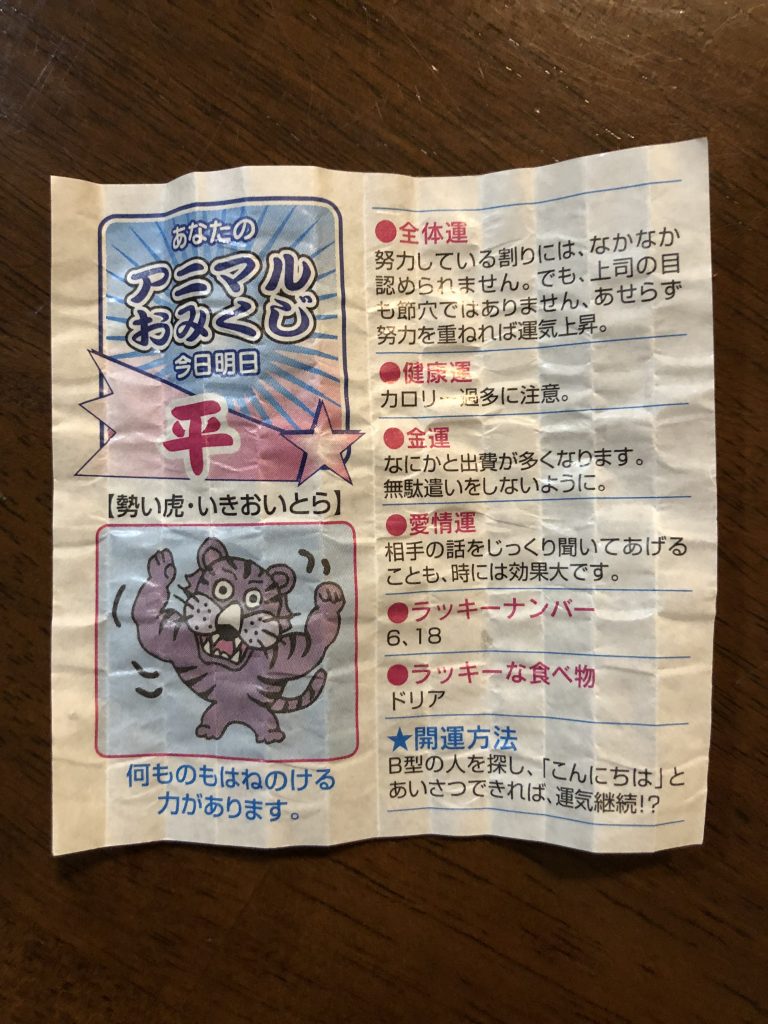 あなたの
アニマル
おみくじ
今日明日
平
【勢い虎・いきおいとら】
何ものもはねのける
力があります。
●全体運
努力している割りには、なかなか
認められません。でも、上司の目
も節穴ではありません、あせらず
努力を重ねれば運気上昇。
●健康運
カロリー過多に注意。
●金運
なにかと出費が多くなります。
無駄遣いをしないように。
●愛情運
相手の話をじっくり聞いてあげる
ことも、時には効果大です。
●ラッキーナンバー
6、18
●ラッキーな食べ物
ドリア
★開運方法
B型の人を探し、「こんにちは」と
あいさつできれば、運気継続!?